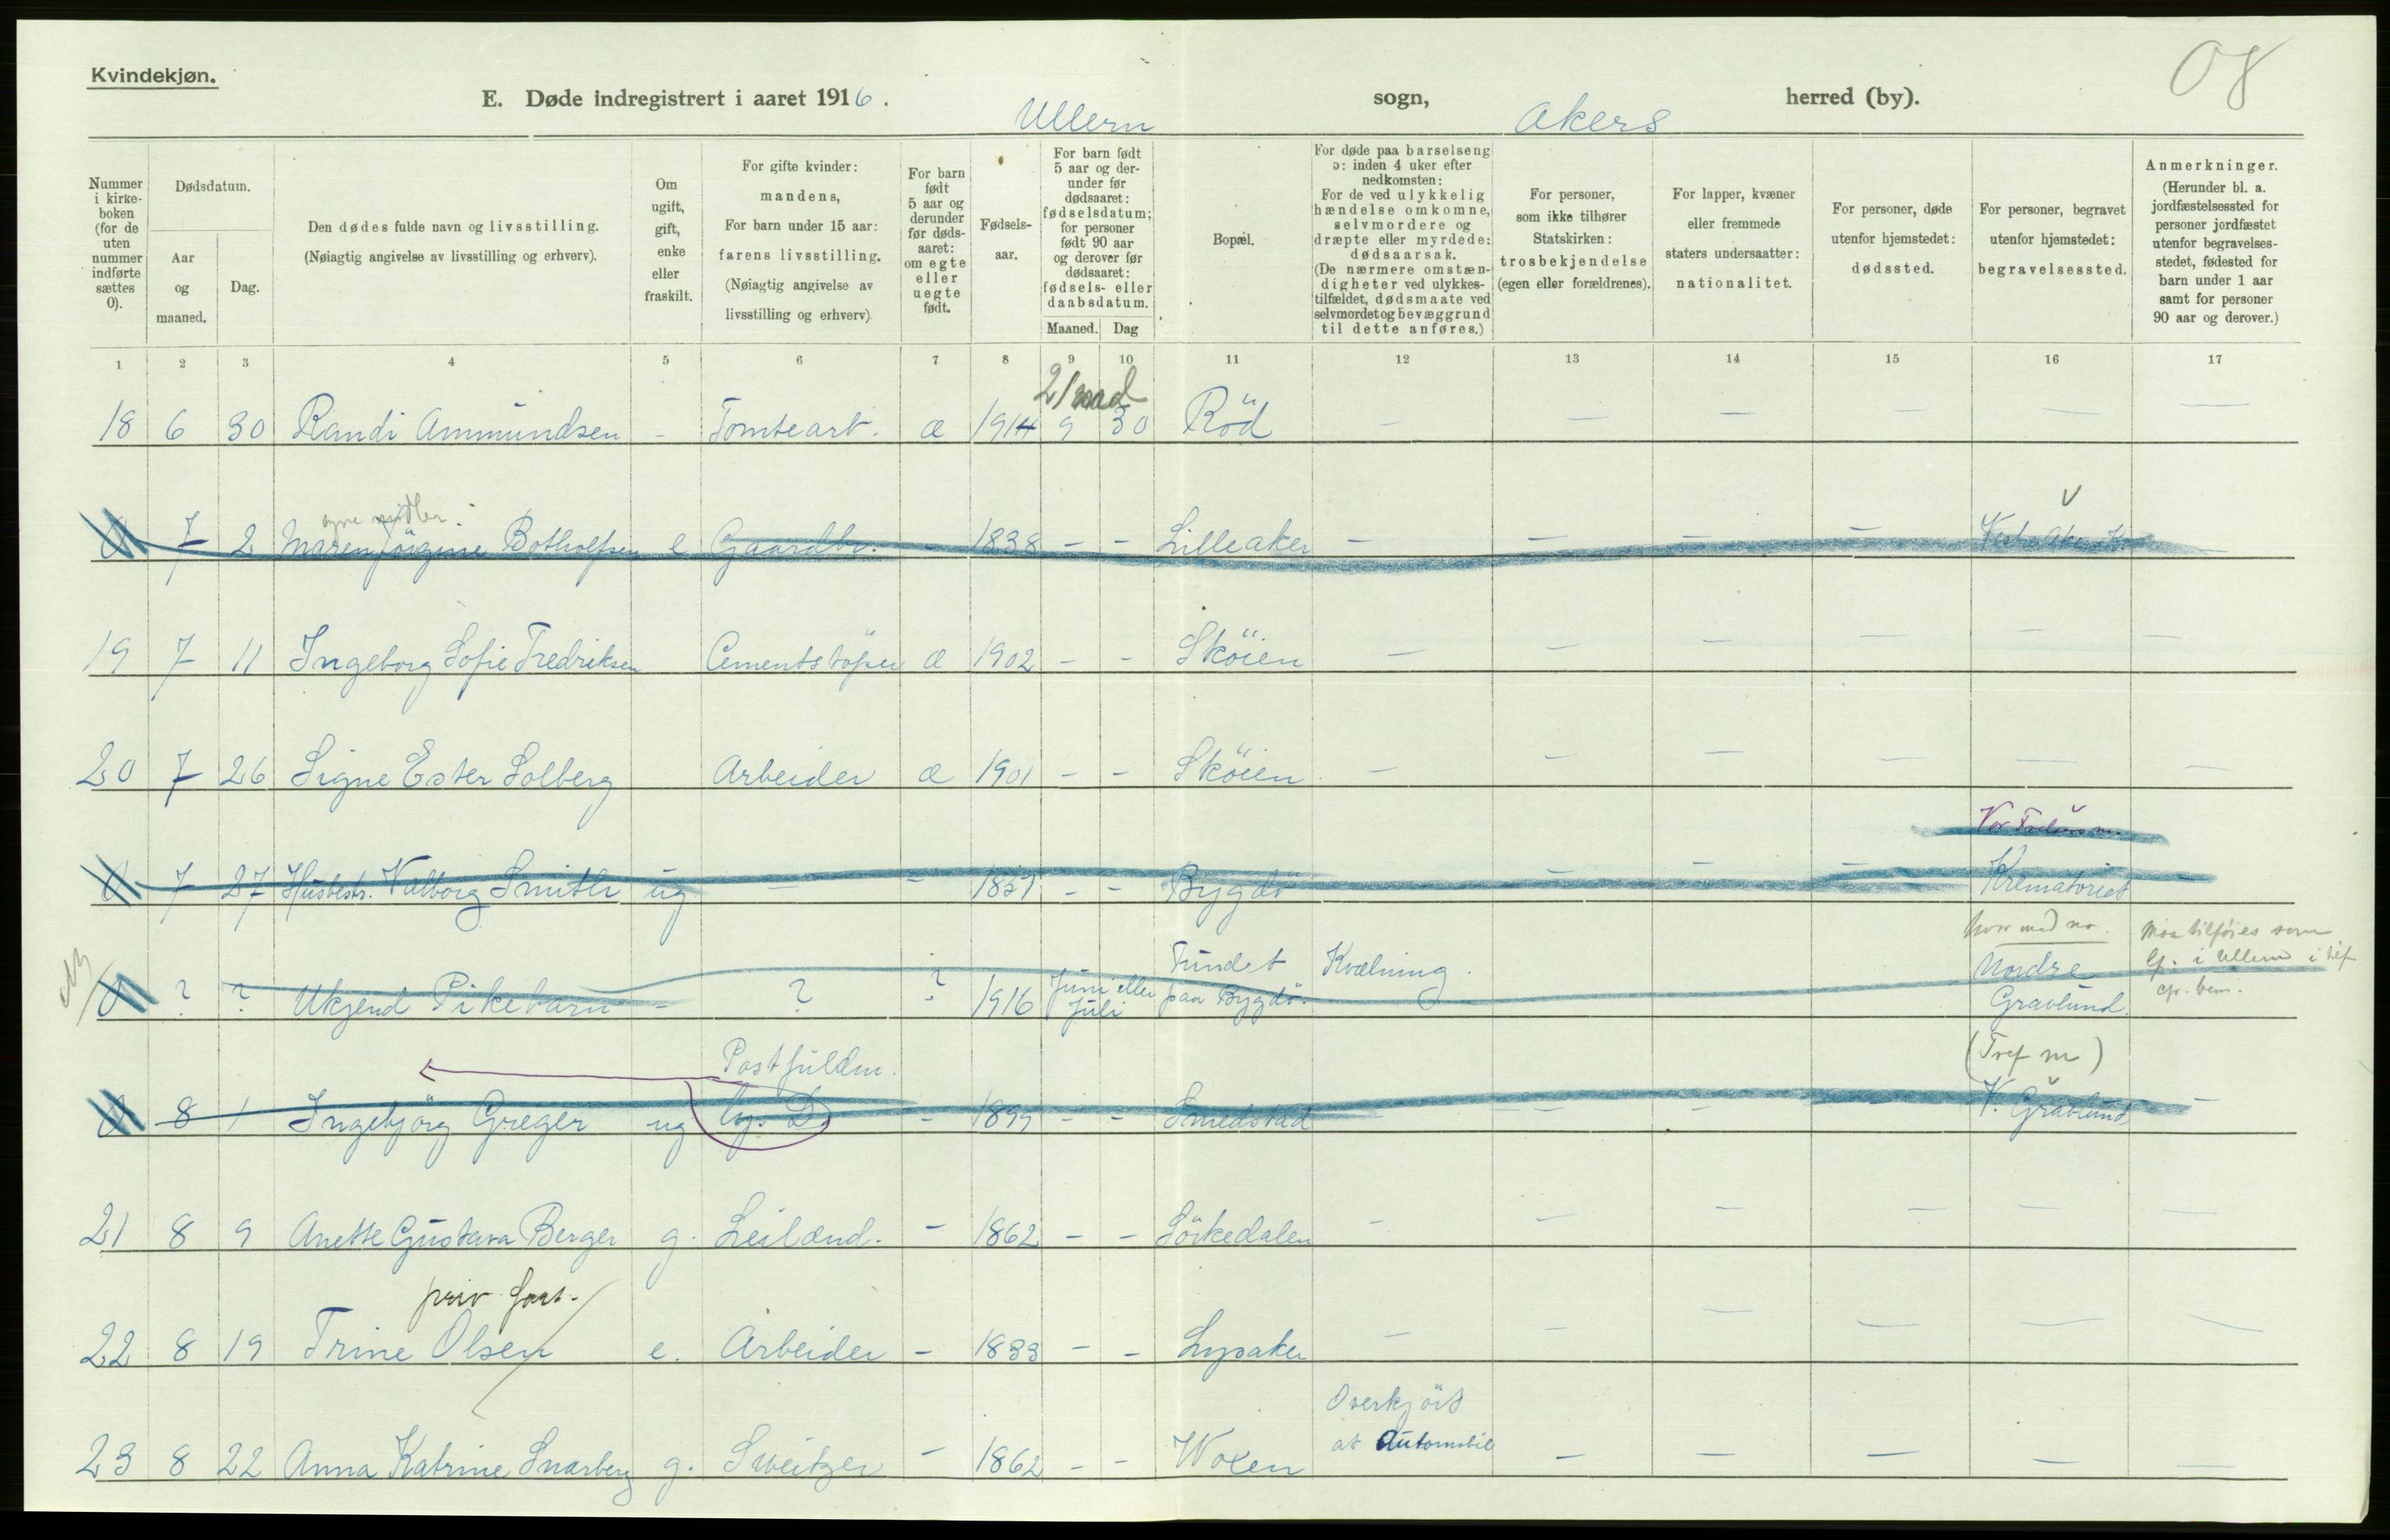 Kvindekjøn.
08
E. Døde indregistrert i aaret 1916. Ullern sogn, Akers herred (by).
Nummer i kirke-boken (for de uten nummer indførte sættes 0).
Dødsdatum.
Aar og maaned.
Dag.
Den dødes fulde navn og livsstilling.
(Nøiagtig angivelse av livsstilling og erhverv).
Om ugift, gift, enke eller fraskilt.
For gifte kvinder: mandens,
For barn under 15 aar: farens livsstilling.
(Nøiagtig angivelse av livsstilling og erhverv)
For barn født 5 aar og derunder før døds-aaret: om egte eller uegte født.
Fødsels-aar.
For barn født 5 aar og der-under før dødsaaret: fødselsdatum; for personer født 90 aar og derover før dødsaaret: fødsels- eller daabsdatum.
Maaned. Dag
Bopæl.
For døde paa barselseng ɔ: inden 4 uker efter nedkomsten:
For de ved ulykkelig hændelse omkomne, selvmordere og dræpte eller myrdede: dødsaarsak.
(De nærmere omstæn-digheter ved ulykkes-tilfældet, dødsmaate ved selvmordet og bevæggrund til dette anføres.)
For personer, som ikke tilhører Statskirken: trosbekjendelse (egen eller forældrenes).
For lapper, kvæner eller fremmede staters undersaatter: nationalitet.
For personer, døde utenfor hjemstedet: dødssted.
For personer, begravet utenfor hjemstedet: begravelsessted.
Anmerkninger.
(Herunder bl. a. jordfæstelsessted for personer jordfæstet utenfor begravelses-stedet, fødested for barn under 1 aar samt for personer 90 aar og derover.)
1 2 3 4 5 6 7 8 9 10 11 12 13 14 15 16 17
21 mnd
18 6 30 Randi Ammundsen - Tomtearb. æ 1914 9 30 Röd - - - - - -
egne midler.
0 7 2 Maren Jörgine Botholfsen e Gaardbr. - 1838 - - Lilleaker - - - - Vestre Aker K. -
19 7 11 Ingeborg Sofie Fredriksen Cementstöper æ 1902 - - Sköien - - - - - -
20 7 26 Signe Ester Solberg Arbeider æ 1901 - - Sköien - - - - - -
Vor Frelsers m.
0 7 27 Husbest. Valborg Smith ug - - 1857 - - Bygdö - - - Krematoriet
0 ? ? Ukjend Pikebarn - ? ? 1916 Juni eller Juli Fundet paa Bygdö. Kvælning. Nordre Gravlund.
Maa tilföies som
Postfuldm.
0 8 1 Ingebjörg Greger ug - 1899 - - Smedstad - - - - V. Gravlund -
21 8 9 Anette Gustava Berger g. Leilænd. - 1862 - - Sörkedalen - - - - - -
priv. fors.
22 8 19 Trine Olsen e. Arbeider - 1833 - - Lysaker - - - - - -
Overkjört
23 8 22 Anna Katrine Snarberg g. Sweitzer - 1862 - - Woxen at Automobil - - - - -